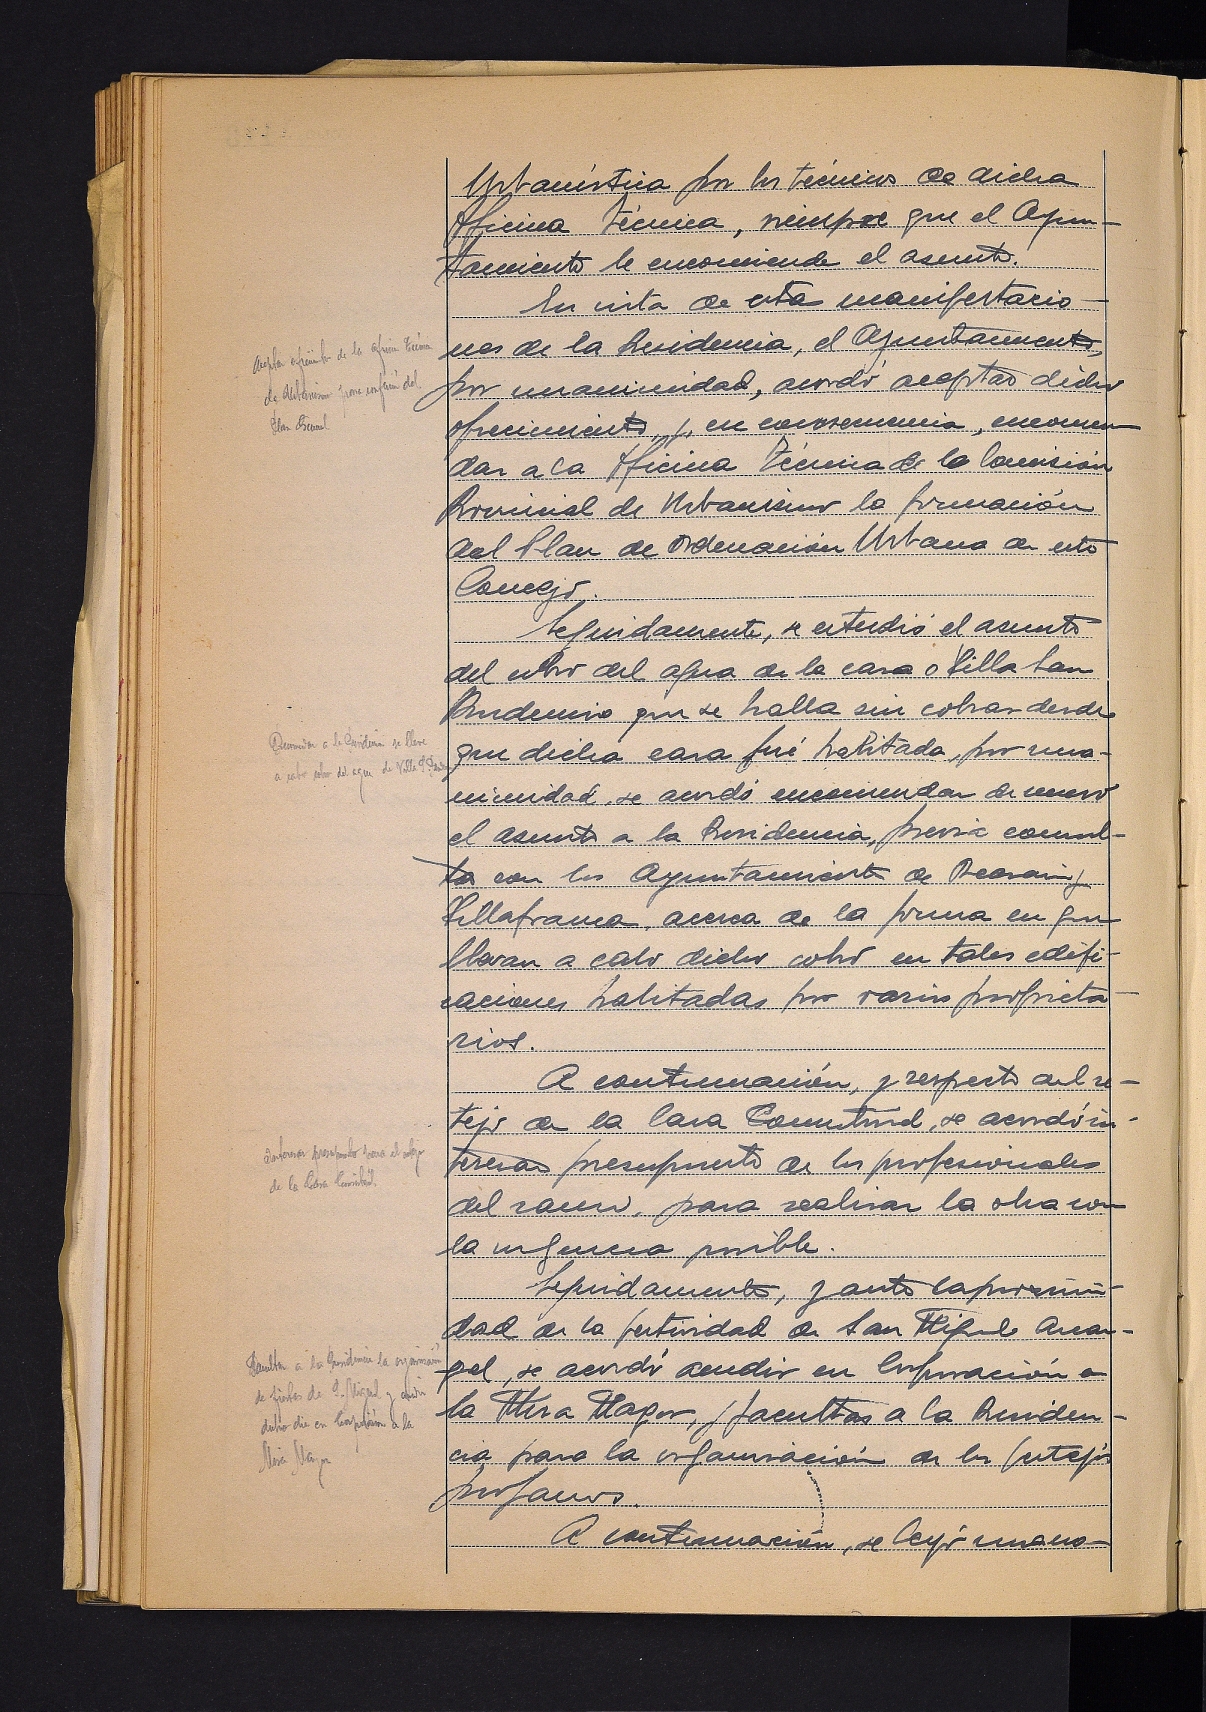 Urbanística por los técnicos de dicha
Oficina Técnica, siempre que el Ayun-
tamiento le encomiende el asunto.
En vista de esta manifestacio-
nes de la Presidencia, el Ayuntamiento,
por unanimidad, acordó aceptar dicho
ofrecimiento, y, en consecuencia, encomen-
dar a la Oficina Técnica de la Comisión
Provincial de Urbanismo la formación
del Plan de Ordenación Urbana de este
Concejo.
Seguidamente, se estudió el asunto
del cobro del agua de la casa o Villa San
Prudencio que se halla sin cobrar desde
que dicha casa fué habitada, por una-
nimidad, se acordó encomendar de nuevo
el asunto a la Presidencia, previa consul-
ta con los Ayuntamientos de Beasain y
Villafranca, acerca de la forma en que
llevan a cabo dicho cobro en tales edifi-
caciones habitadas por varios propieta-
rios.
A continuación, y respecto del re-
tejo de la Casa Consistorial, se acordó in-
teresar presupuesto de los profesionales
del ramo, para realizar la obra con
la urgencia posible.
Seguidamente, y ante la proximi-
dad de la festividad de San Miguel Arcan-
gel, se acordó acudir en Corporación a
la Misa Mayor, y facultar a la Presiden-
cia para la organización de los festejos
profanos.
A continuación, se leyó una no-
Aceptar ofrecimiento de la oficina técnica
de Urbanismo para confección del
Plan General
Encomendar a la Presidencia se lleve
a cabo cobro del agua de Villa S. Prudencio
presupuesto para el retejo
de la Casa Consistorial.
Facultar a la Presidencia la organización
de fiestas de S. Miguel y acudir
dicho día en Corporación a la
Misa Mayor